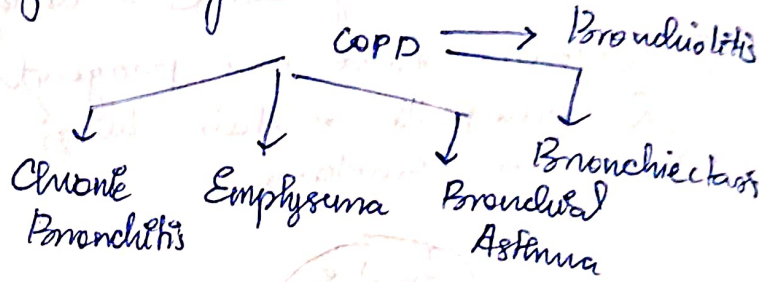 COPD Bronchiolitis
Chronic Bronchitis
Emphysema
Bronchial Asthma
Bronchiectasis